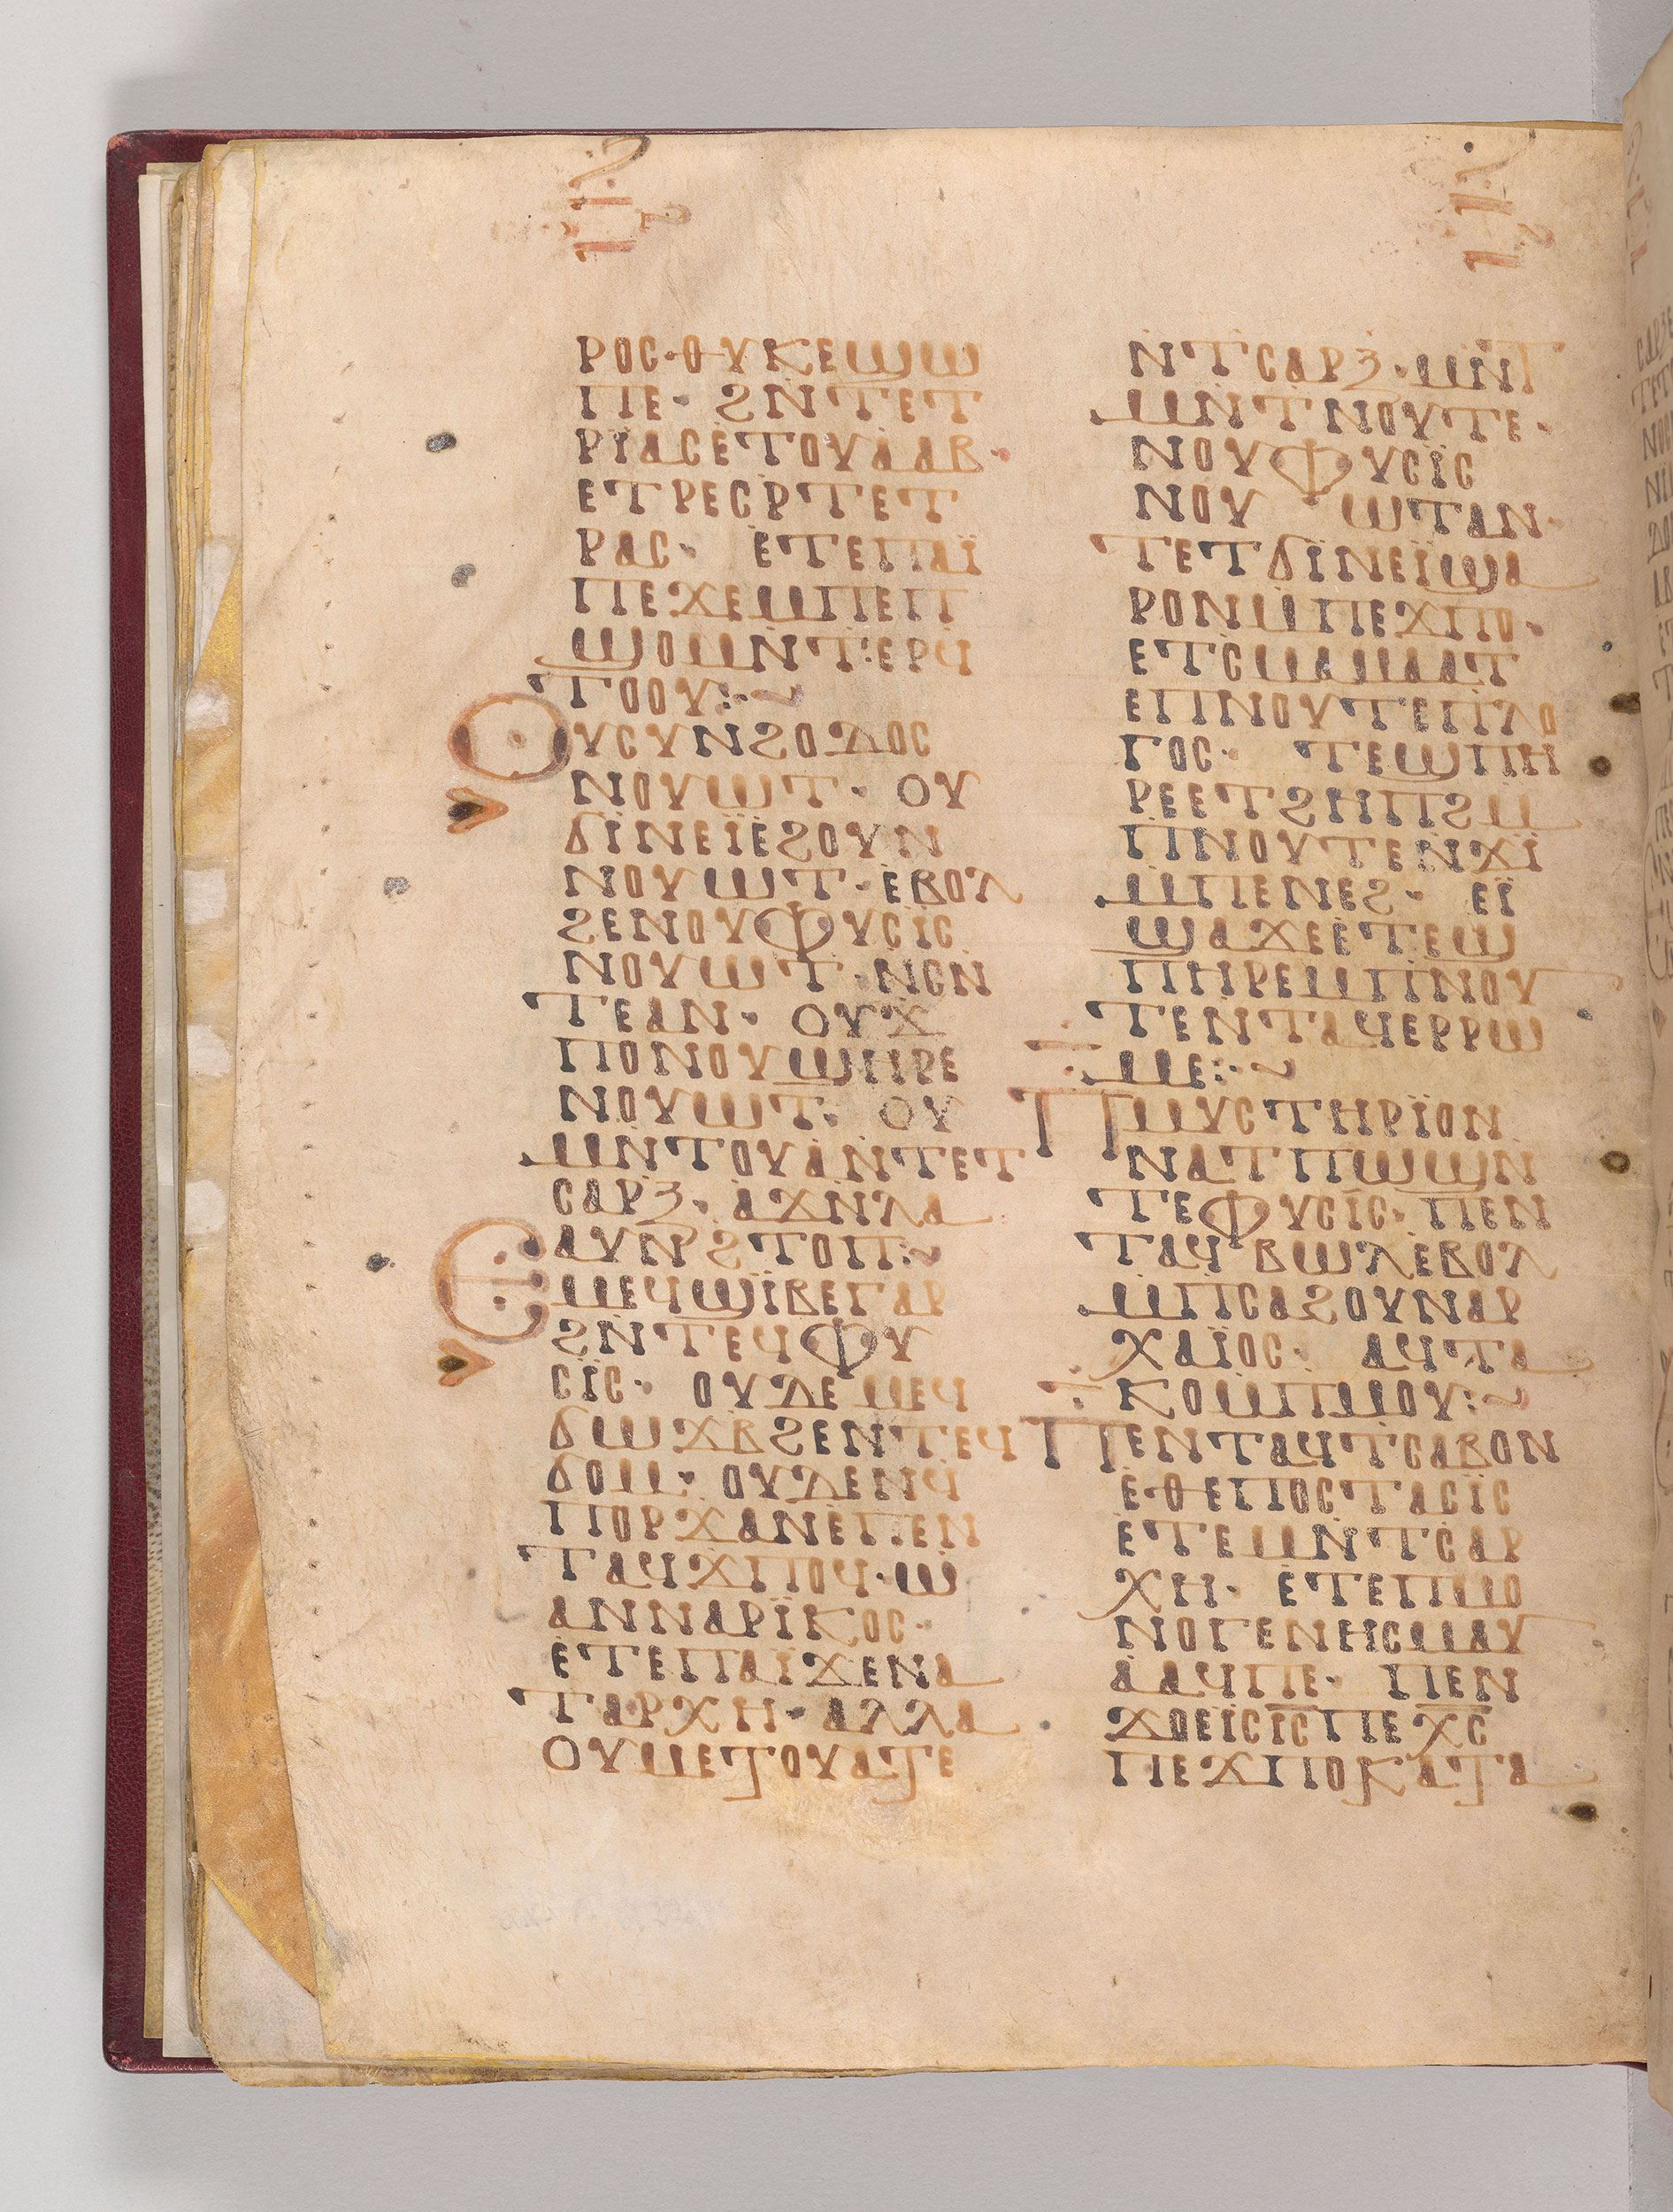 ⲣⲟⲥ·ⲑⲩⲕⲉϣϣ
ⲡⲉ· ϩⲛⲧⲉⲧ
ⲣⲓ̈ⲁⲥⲉ̇ⲧⲟⲩⲁ̇ⲁⲃ·
ⲉⲧⲣⲉⲥⲣ̇ⲧⲉⲧ
ⲣⲁⲥ· ⲉ̇ⲧⲉⲡⲁⲓ̈
ⲡⲉϫⲉⲙⲡⲉⲡ
ϣⲟⲙⲛ̇ⲧ:ⲉⲣϥ
ⲧⲟⲟⲩ:·~
ⲟⲩⲥⲩⲛϩⲟⲇⲟⲥ
ⲛⲟⲩⲱⲧ· ⲟⲩ
ϭⲓ̈ⲛⲉⲓ̈ⲉ̇ϩⲟⲩⲛ
ⲛⲟⲩⲱⲧ·ⲉ̇ⲃⲟⲗ
ϩⲉⲛⲟⲩⲫⲩⲥⲓ̈ⲥ
ⲛⲟⲩⲱⲧ·ⲛ̇ⲥⲛ̇
ⲧⲉⲁⲛ· ⲟⲩϫ
ⲡⲟⲛⲟⲩϣⲏⲣⲉ
ⲛⲟⲩⲱⲧ· ⲟⲩ
ⲙⲛ̇ⲧⲟⲩⲁ̇ⲛ̇ⲧⲉⲧ
ⲥⲁⲣⲝ· ⲁ̇ϫⲛ̇ⲗⲁ
ⲁⲩⲛ̇ϩⲧⲟⲡ:~
ⲉⲙⲉϥϣⲓ̈ⲃⲉⲅⲁⲣ
ϩⲛⲧⲉϥⲫⲩ
ⲥⲓ̈ⲥ· ⲟⲩⲇⲉⲙⲉϥ
ϭⲱϫⲃ̇ϩⲉⲛⲧⲉϥ
ϭⲟⲙ· ⲟⲩⲇⲉⲛϥ̇
ⲡⲟⲣϫⲁⲛⲉ̇ⲡⲉⲛ
ⲧⲁϥϫⲡⲟϥ·ⲱ̇
ⲁⲛⲛⲁⲣⲓ̈ⲕⲟⲥ·
ⲉ̇ⲧⲉⲡⲁⲓ̈ϫⲉⲛⲁ
ⲧⲁⲣⲭⲏ·ⲁⲗⲗⲁ
ⲟⲩⲙⲉⲧⲟⲩⲁⲧⲉ
ⲛ̇ⲧ̇ⲥⲁⲣⲝ̇·ⲙⲛ̇ⲧ
ⲙⲛ̇ⲧⲛⲟⲩⲧⲉ·
ⲛⲟⲩⲫⲩⲥⲓ̈ⲥ
ⲛⲟⲩ ⲱⲧⲁⲛ·
ⲧⲉⲧϭⲓ̈ⲛⲉⲓ̈ϣⲁ
ⲣⲟⲛⲙ̇ⲡⲉϫⲡⲟ·
ⲉⲧⲥ̇ⲙⲁⲙⲁⲁⲧ
ⲉⲡⲛⲟⲩⲧⲉⲡⲗⲟ
ⲅⲟⲥ· ⲧⲉϣⲡⲏ
ⲣⲉⲉⲧϩⲏⲡϩⲙ̇
ⲡⲛⲟⲩⲧⲉⲛϫⲓ̈
ⲙ̇ⲡⲉⲛⲉϩ· ⲉⲓ̈
ϣⲁϫⲉⲉ̇ⲧⲉϣ
ⲡⲏⲣⲉⲙⲡⲛⲟⲩ
ⲧⲉⲛⲧⲁϥⲉⲣⲣⲱ
ⲙⲉ:·~
ⲡⲙⲩⲥⲧⲏⲣⲓ̈ⲟⲛ
ⲛ̇ⲁⲧⲡⲱⲱⲛ
ⲧⲉⲫⲩⲥⲓ̈ⲥ·ⲡⲉⲛ
ⲧⲁϥⲃⲱⲗⲉⲃⲟⲗ
ⲙ̇ⲡⲥⲁϩⲟⲩⲛⲁⲣ
ⲭⲁⲓ̈ⲟⲥ· ⲁϥⲧⲁ
ⲕⲟⲙ̇ⲡⲙⲟⲩ:~
ⲡⲉⲛⲧⲁϥⲧⲥⲁⲃⲟⲛ
ⲉ̇ⲑⲉⲡⲟⲥⲧⲁⲥⲓ̈ⲥ
ⲉ̇ⲧⲉⲙⲛ̇ⲧⲥ̇ⲁⲣ
ⲭⲏ· ⲉⲧⲉⲡⲙⲟ
ⲛⲟⲅⲉⲛⲏⲥⲙⲁⲩ
ⲁ̇ⲁϥⲡⲉ· ⲡⲉⲛ
ϫⲟⲉⲓ̈ⲥⲓ̅ⲥ̅ⲡⲉⲭ̅ⲥ̅
ⲡⲉϫⲡⲟⲕⲁⲧⲁ